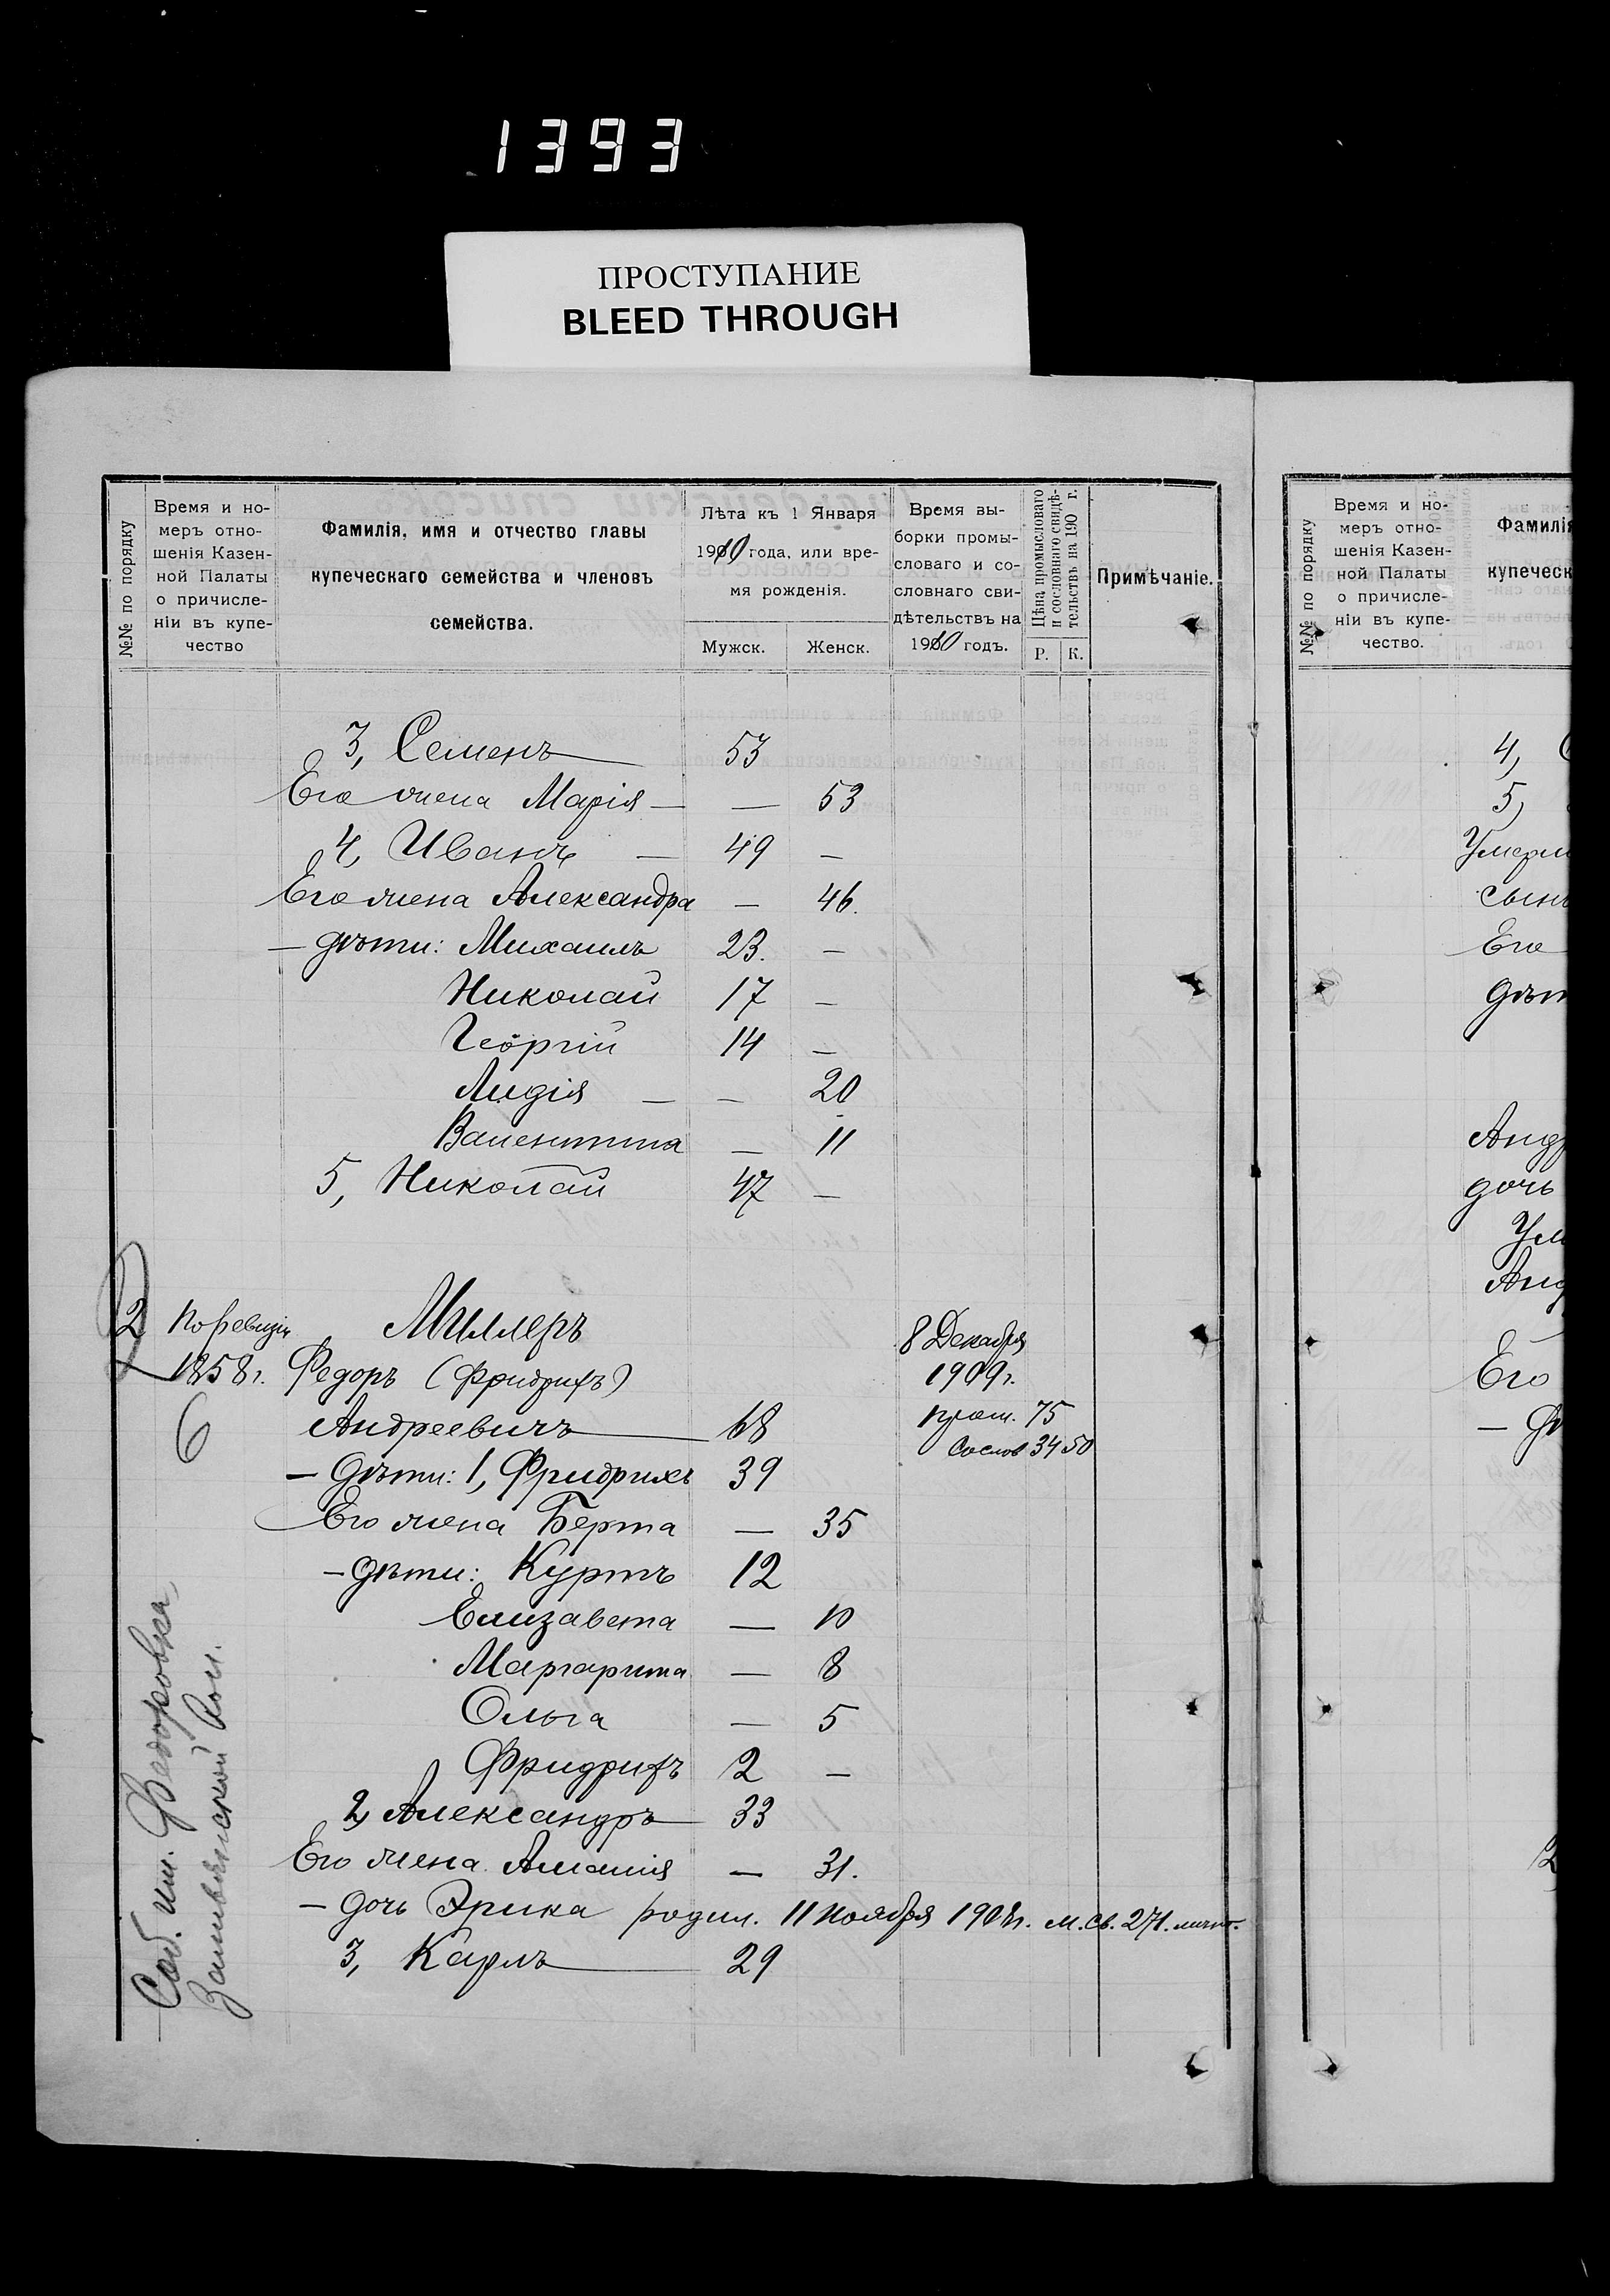 1393
ПРОСТУПАНИЕ
BLEED THROUGH
№№ по порядку
Время и но-
меръ отно-
шенія Казен-
ной Палаты
о причисле-
ніи въ купе-
чество
Фамилія, имя и отчество главы
купеческаго семейства и членовъ
семейства.
Лѣта къ 1 Января
1910 года, или вре-
мя рожденія.
Мужск. Женск.
Время вы-
борки промы-
словаго и со-
словнаго сви-
дѣтельствъ на
1910 годъ.
Цѣна промысловаго
и сословнаго свидѣ-
тельствъ на 190 г.
Р. К.
Примѣчаніе.
3, Семенъ 53
Его жена Марія — — 53
4, Иванъ — 49 —
Его жена Александра — 46.
— дѣти: Михаилъ 23. —
Николай 17 —
Георгій 14 —
Лидія — — 20
Валентина — 11
5, Николай 47 —
2 По ревизіи Миллеръ 8 Декабря
1858 г. Федоръ (Фридрихъ) 1909 г.
6 Андреевичъ 68 пром. 75
Сослов 34 50
— Дѣти: 1, Фридрихъ 39
Его жена Берта — 35
— дѣти: Куртъ 12
Елизавета — 10
Маргарита — 8
Ольга — 5
Фридрихъ 2 —
2, Александръ 33
Его жена Амалія — 31.
— дочь Эрика родил. 11 Ноября 1908 г. м. св. 271.
3, Карлъ 29
Соб. им. Федоровка
№№ по порядку
Время и но-
меръ отно-
шенія Казен-
ной Палаты
о причисле-
ніи въ купе-
чество.
Фамилія
купеческ
4,
5,
Умерш
сынъ
Его
дѣт
Анд
дочь
Ум
Анд
Его
— дѣ
2